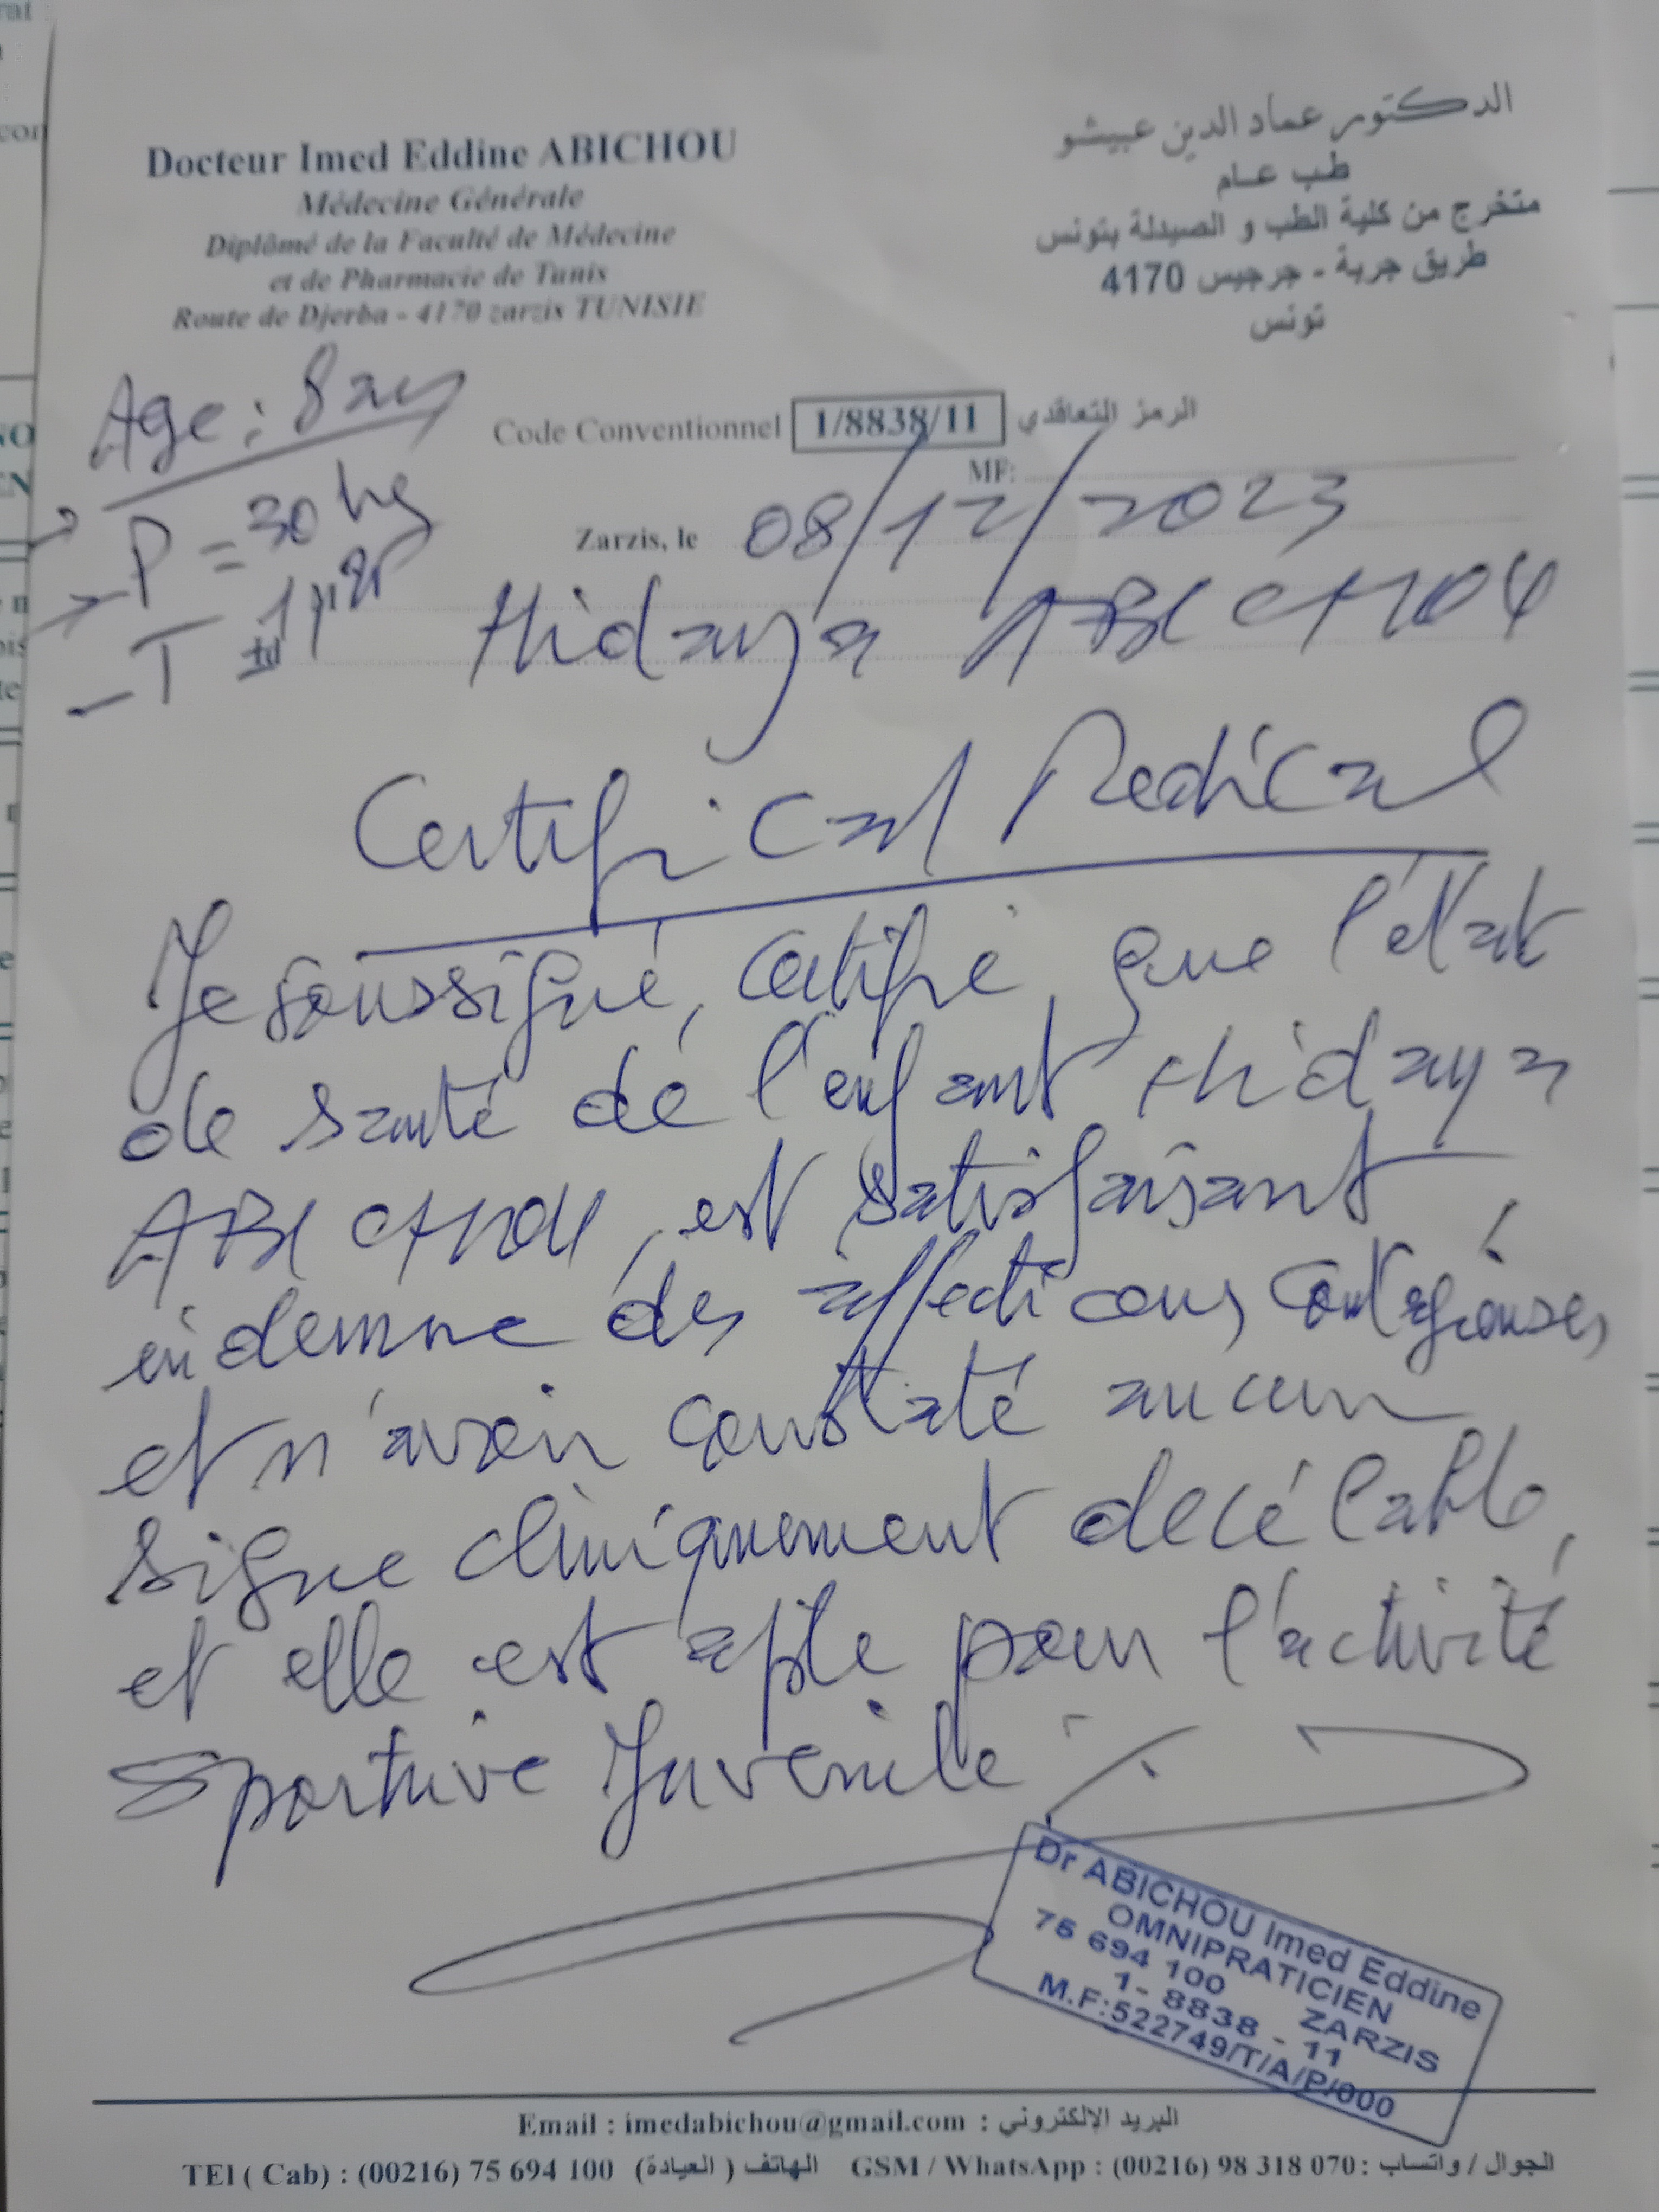 Docteur Imed Eddine ABICHOU
Médecine Générale
Diplômé de la Faculté de Médecine
et de Pharmacie de Tunis
Route de Djerba - 4170 zarzis TUNISIE
الدكتور عماد الدين عبيشو
طب عام
متخرج من كلية الطب و الصيدلة بتونس
طريق جربة - جرجيس 4170
تونس
Age : 8 ans
P = 30 kg
T
Code Conventionnel 1/8838/11 الرمز التعاقدي
MF:
Zarzis, le 08/12/2023
Hidaya ABICHOU
Certificat Medical
Je soussigné, certifie que l'état
de santé de l'enfant Hidaya
ABICHOU, est satisfaisant,
indemne des affections contagieuses,
et n'avoir constaté aucun
signe cliniquement décélable,
et elle est apte pour l'activité
sportive Juvenile
Dr ABICHOU Imed Eddine
OMNIPRATICIEN
75 694 100 ZARZIS
1- 8838 - 11
M.F:522749/T/A/P/000
Email : imedabichou@gmail.com : البريد الإلكتروني
TEl ( Cab) : (00216) 75 694 100 الهاتف ( العيادة) GSM / WhatsApp : (00216) 98 318 070 : الجوال / واتساب